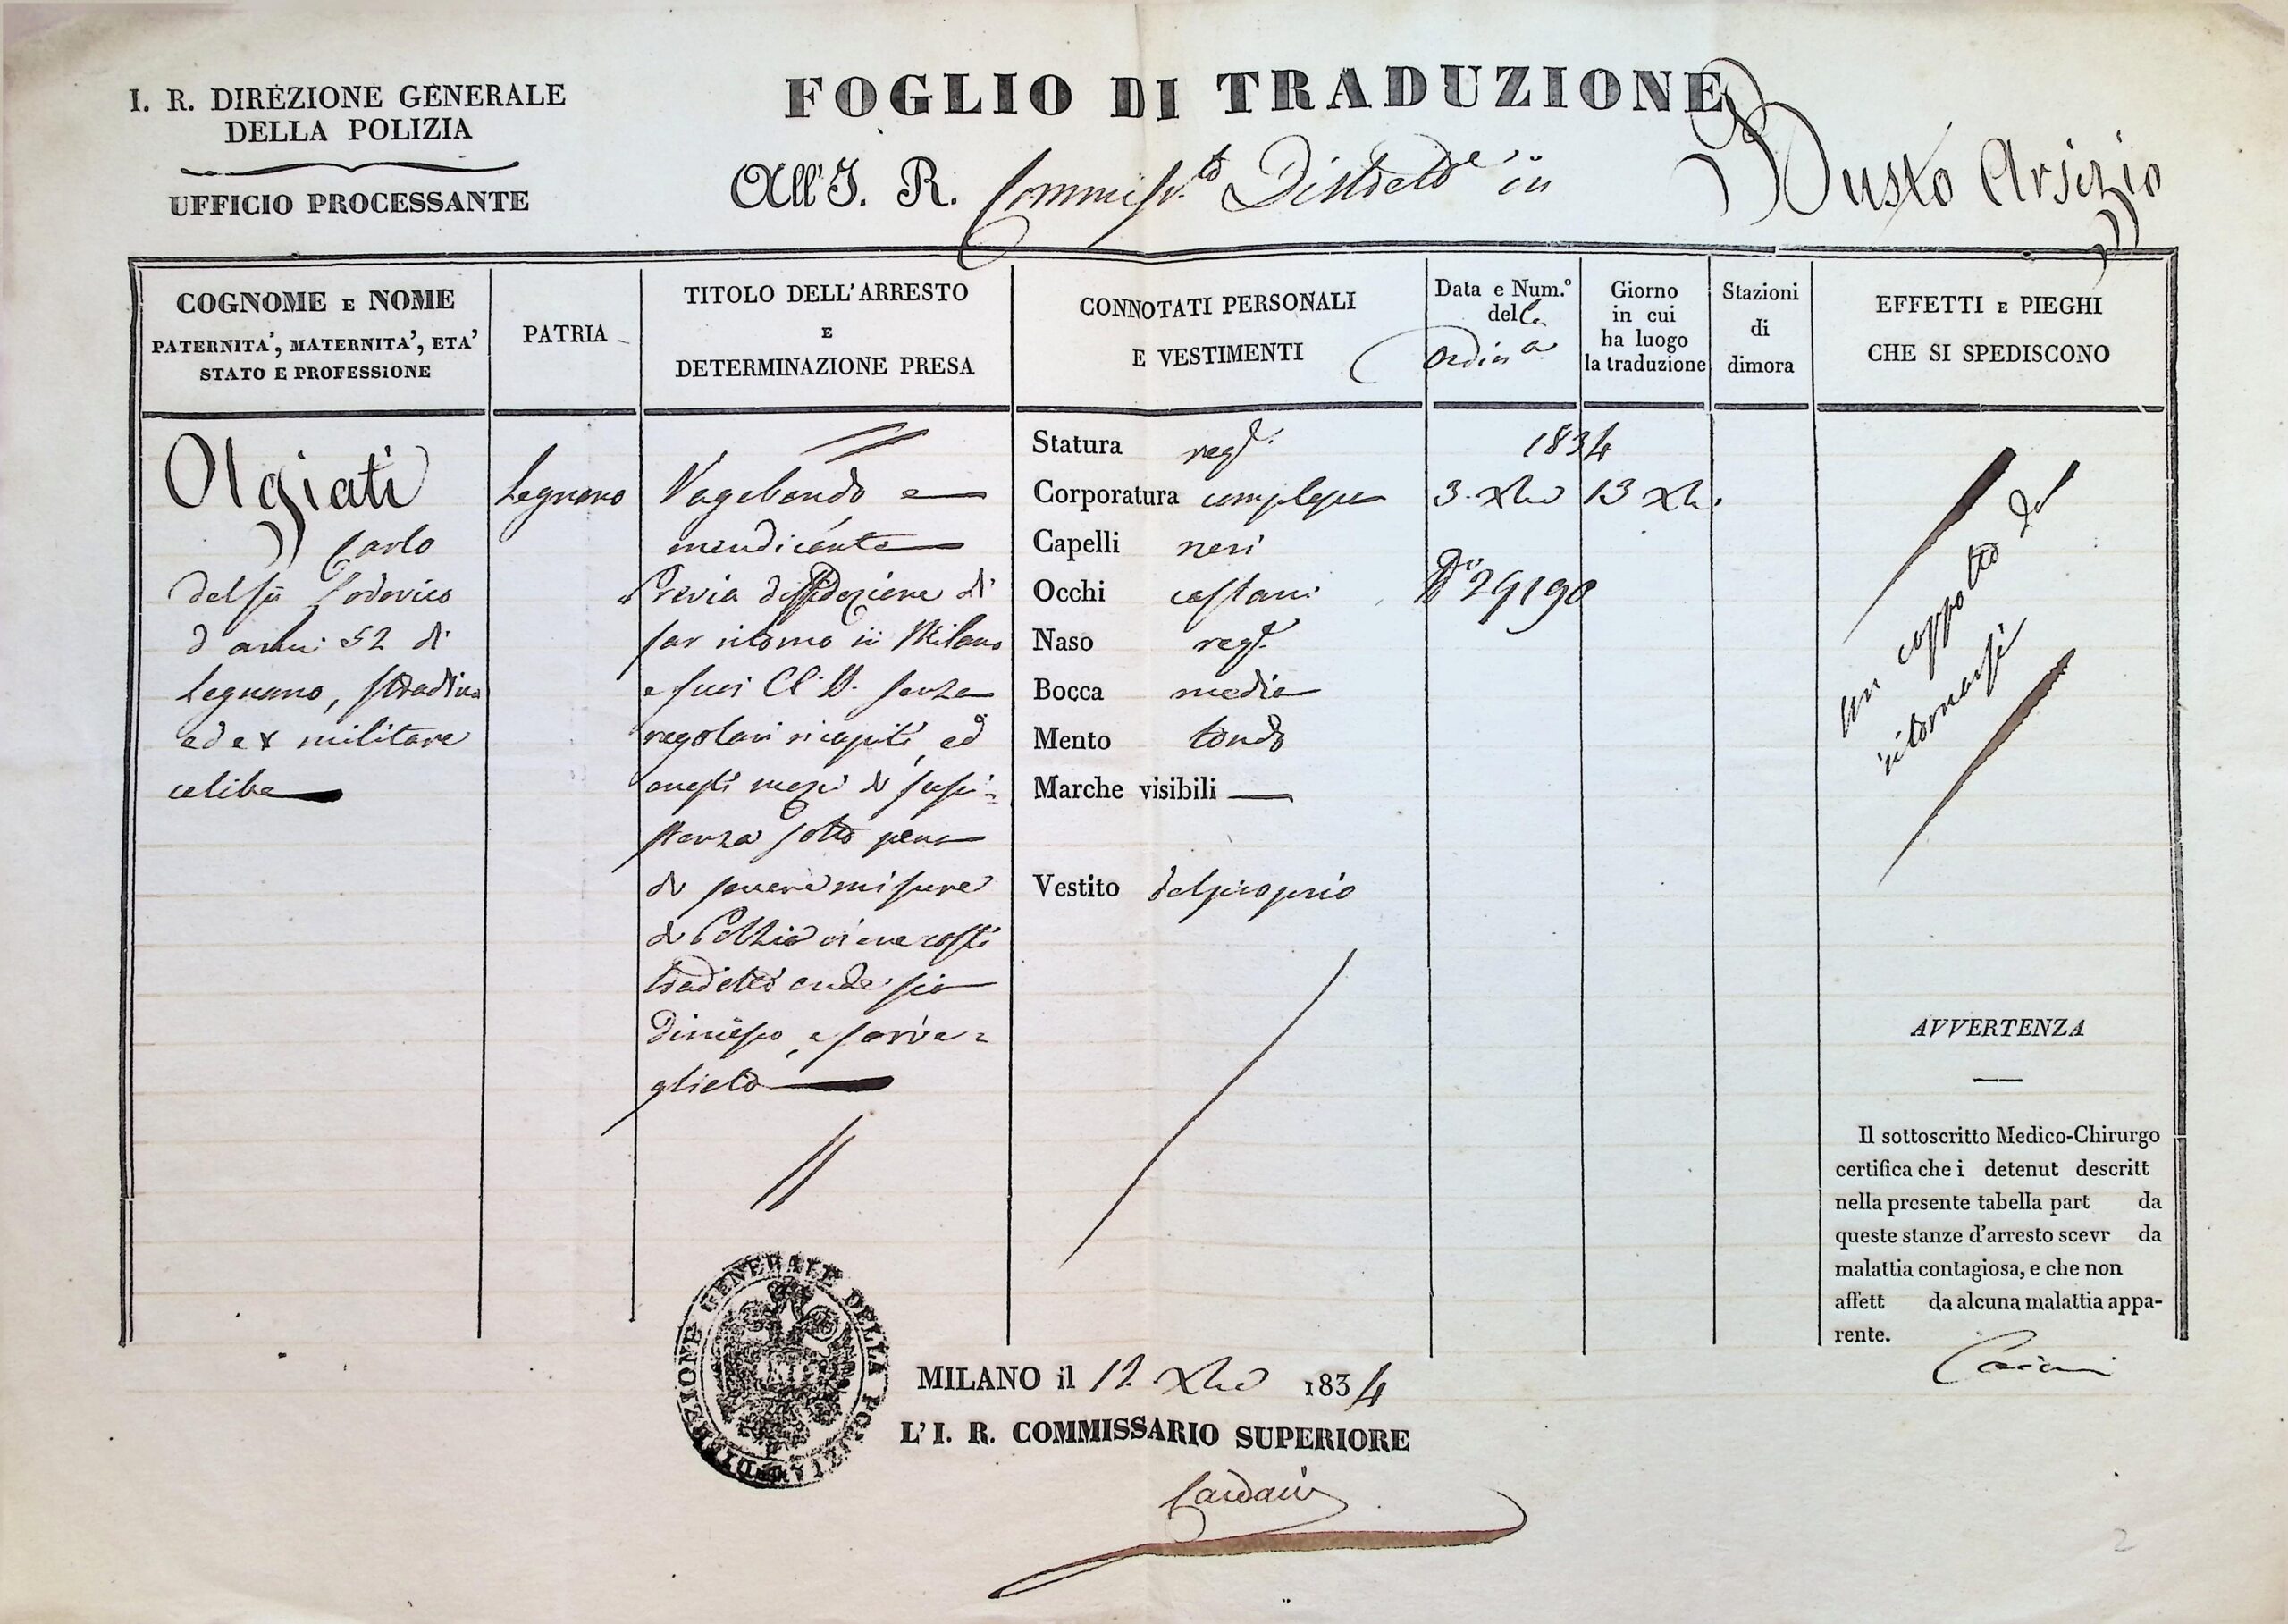 I. R. DIREZIONE GENERALE
DELLA POLIZIA
UFFICIO PROCESSANTE
FOGLIO DI TRADUZIONE
All' I. R. Commiss.to Distrett.e in Busto Arsizio
COGNOME E NOME
PATERNITA', MATERNITA', ETA'
STATO E PROFESSIONE
PATRIA
TITOLO DELL'ARRESTO
E
DETERMINAZIONE PRESA
CONNOTATI PERSONALI
E VESTIMENTI
Data e Num.o
della
Ordin.a
Giorno
in cui
ha luogo
la traduzione
Stazioni
di
dimora
EFFETTI E PIEGHI
CHE SI SPEDISCONO
Olgiati
Carlo
del fu Lodovico
d'anni 52 di
Legnano,
ed ex militare
celibe
Legnano
Vagabondo e
mendicante
Previa diffidazione di
far ritorno in Milano
e suoi CC. SS. senza
regolari ricapiti, ed
onesti mezzi di sussi-
stenza sotto pena
di severe misure
di Polizia viene costì
tradotto onde sia
dimesso, e sorve=
gliato
Statura reg.e
Corporatura complessa
Capelli neri
Occhi castani
Naso reg.e
Bocca media
Mento tondo
Marche visibili —
Vestito del proprio
1834
3. Xbre
N.o 29190
13 Xbre
un cappotto da
ritornarsi
AVVERTENZA
Il sottoscritto Medico-Chirurgo
certifica che i detenut descritt
nella presente tabella part da
queste stanze d'arresto scevr da
malattia contagiosa, e che non
affett da alcuna malattia appa-
rente.
DIREZIONE GENERALE DELLA POLIZIA
MILANO il 12 Xbre 1834
L' I. R. COMMISSARIO SUPERIORE
Cardani
2